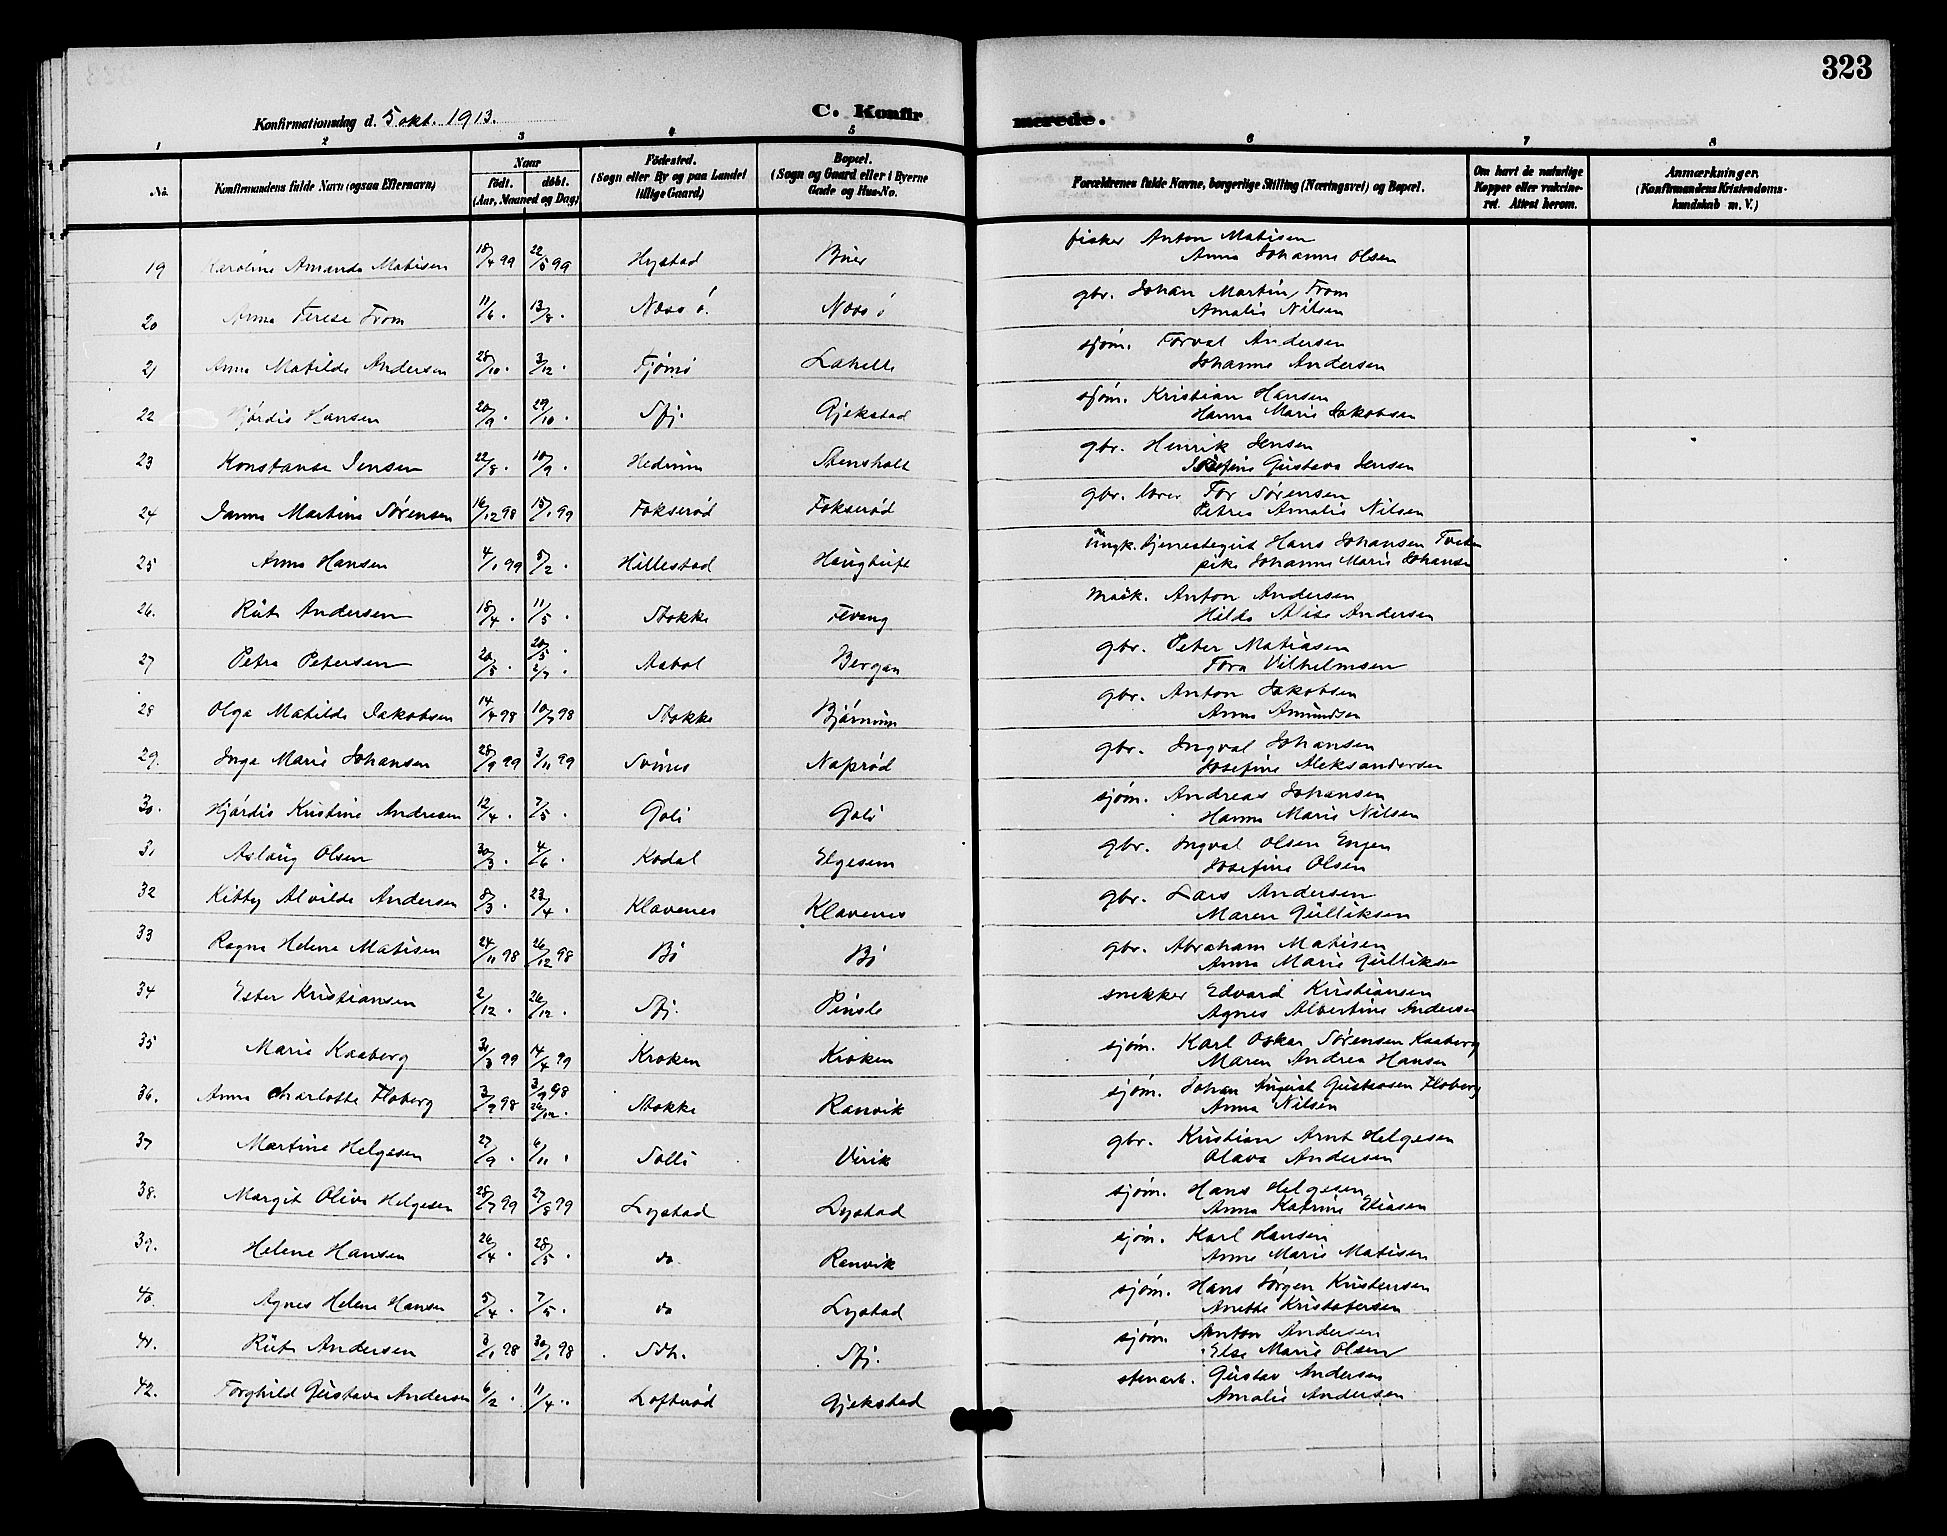 323
Konfirmationsdag d. 5 okt. 1913.
C. Konfirmerede.
1 2 3 4 5 6 7 8
No.
Konfirmandens fulde Navn (ogsaa Efternavn)
Naar
født. døbt.
(Aar, Maaned og Dag)
Födested.
(Sogn eller By og paa Landet tillige Gaard)
Bopæl.
(Sogn og Gaard eller i Byerne Gade og Hus-No.
Forældrenes fulde Navne, borgerlige Stilling (Næringsvei) og Bopæl.
Om havt de naturlige Kopper eller vakcineret. Attest herom.
Anmærkninger.
(Konfirmandens Kristendomskundskab m. V.)
19 Karoline Amanda Matisen 18/4 99 22/5 99 Hystad Buer fisker Anton Matisen
Anna Johanne Olsen
20 Anna Terese From 11/6. 13/8. Næsø. Næsø gbr. Johan Martin From
Amalie Nilsen
21 Anna Matilde Andersen 28/10. 3/12. Tjømø Lahelle sjøm. Torval Andersen
Johanne Andersen
22 Hjørdis Hansen 20/9. 29/10. Sfj. Gjekstad sjøm. Kristian Hansen
Hanna Marie Jakobsen
23 Konstanse Jensen 22/8. 10/9. Hedrum Stensholt gbr. Henrik Jensen
Josefine Gustava Jensen
24 Janna Martine Sørensen 16/12 98 15/1 99 Fokserød Fokserød gbr. lærer Tor Sørensen
Petrea Amalie Nilsen
25 Anna Hansen 4/1 99 5/2. Hillestad Haugtuft ungk. tjenestegut Hans Johansen Tveten
pike Johanne Marie Johansen
26. Rut Andersen 18/4. 11/5. Stokke Tevang mask. Anton Andersen
Hilda Alise Andersen
27 Petra Petersen 20/5. 20/5. 2/7. Asbol Bergan gbr. Peter Matiasen
Tora Vilhelmsen
28 Olga Matilde Jakobsen 14/4 98 10/7 98 Stokke Bjørnum gbr. Anton Jakobsen
Anna Amundsen
29. Inga Marie Johansen 28/9 99 3/11 99 Svines Naprød gbr. Ingval Johansen
Josefine Aleksandersen
30. Hjørdis Kristine Andresen 12/4. 7/5. Goli Goli sjøm. Andreas Johansen
Hanna Marie Nilsen
31 Aslaug Olsen 30/3. 4/6. Kodal Elgesem gbr. Ingval Olsen Engen
Josefine Olsen
32 Kitty Alvilde Andersen 8/3. 23/4. Klavenes Klavenes gbr. Lars Andersen
Maren Gulliksen
33 Ragna Helene Matisen 24/11 98 26/12 98 Bø Bø gbr. Abraham Matisen
Anna Marie Gulliksen
34 Ester Kristiansen 2/12. 26/12. Sfj. Pinsle snekker Edvard Kristiansen
Agnes Albertine Andersen
35 Marie Kaaberg 31/3 99 14/4 99 Kroken Kroken sjøm. Karl Oskar Sørensen Kaaberg
Maren Andrea Hansen
36. Anna Charlotte Floberg 3/9 98 3/9 98 26/12. Stokke Ranvik sjøm. Johan August Gustavsen Floberg
Anna Nilsen
37 Martine Helgesen 27/9. 6/11. Solli Virik gbr. Kristian Arnt Helgesen
Olava Andersen
38. Margit Olive Helgesen 28/7 99 27/8 99 Lystad Lystad sjøm. Hans Helgesen
Anna Katrine Eliasen
39. Helene Hansen 26/4. 28/5. do. Ranvik sjøm. Karl Hansen
Anne Marie Matisen
40. Agnes Helene Hansen 5/4. 7/5. do Lystad sjøm. Hans Jørgen Kristensen
Anette Kristofersen
41. Rut Andersen 3/1 98 30/1 98 Sdh. Sfj. sjøm. Anton Andersen
Else Marie Olsen
42. Torghild Gustava Andersen 6/2. 11/4. Lofterød Gjekstad stenarb. Gustav Andersen
Amalie Andersen